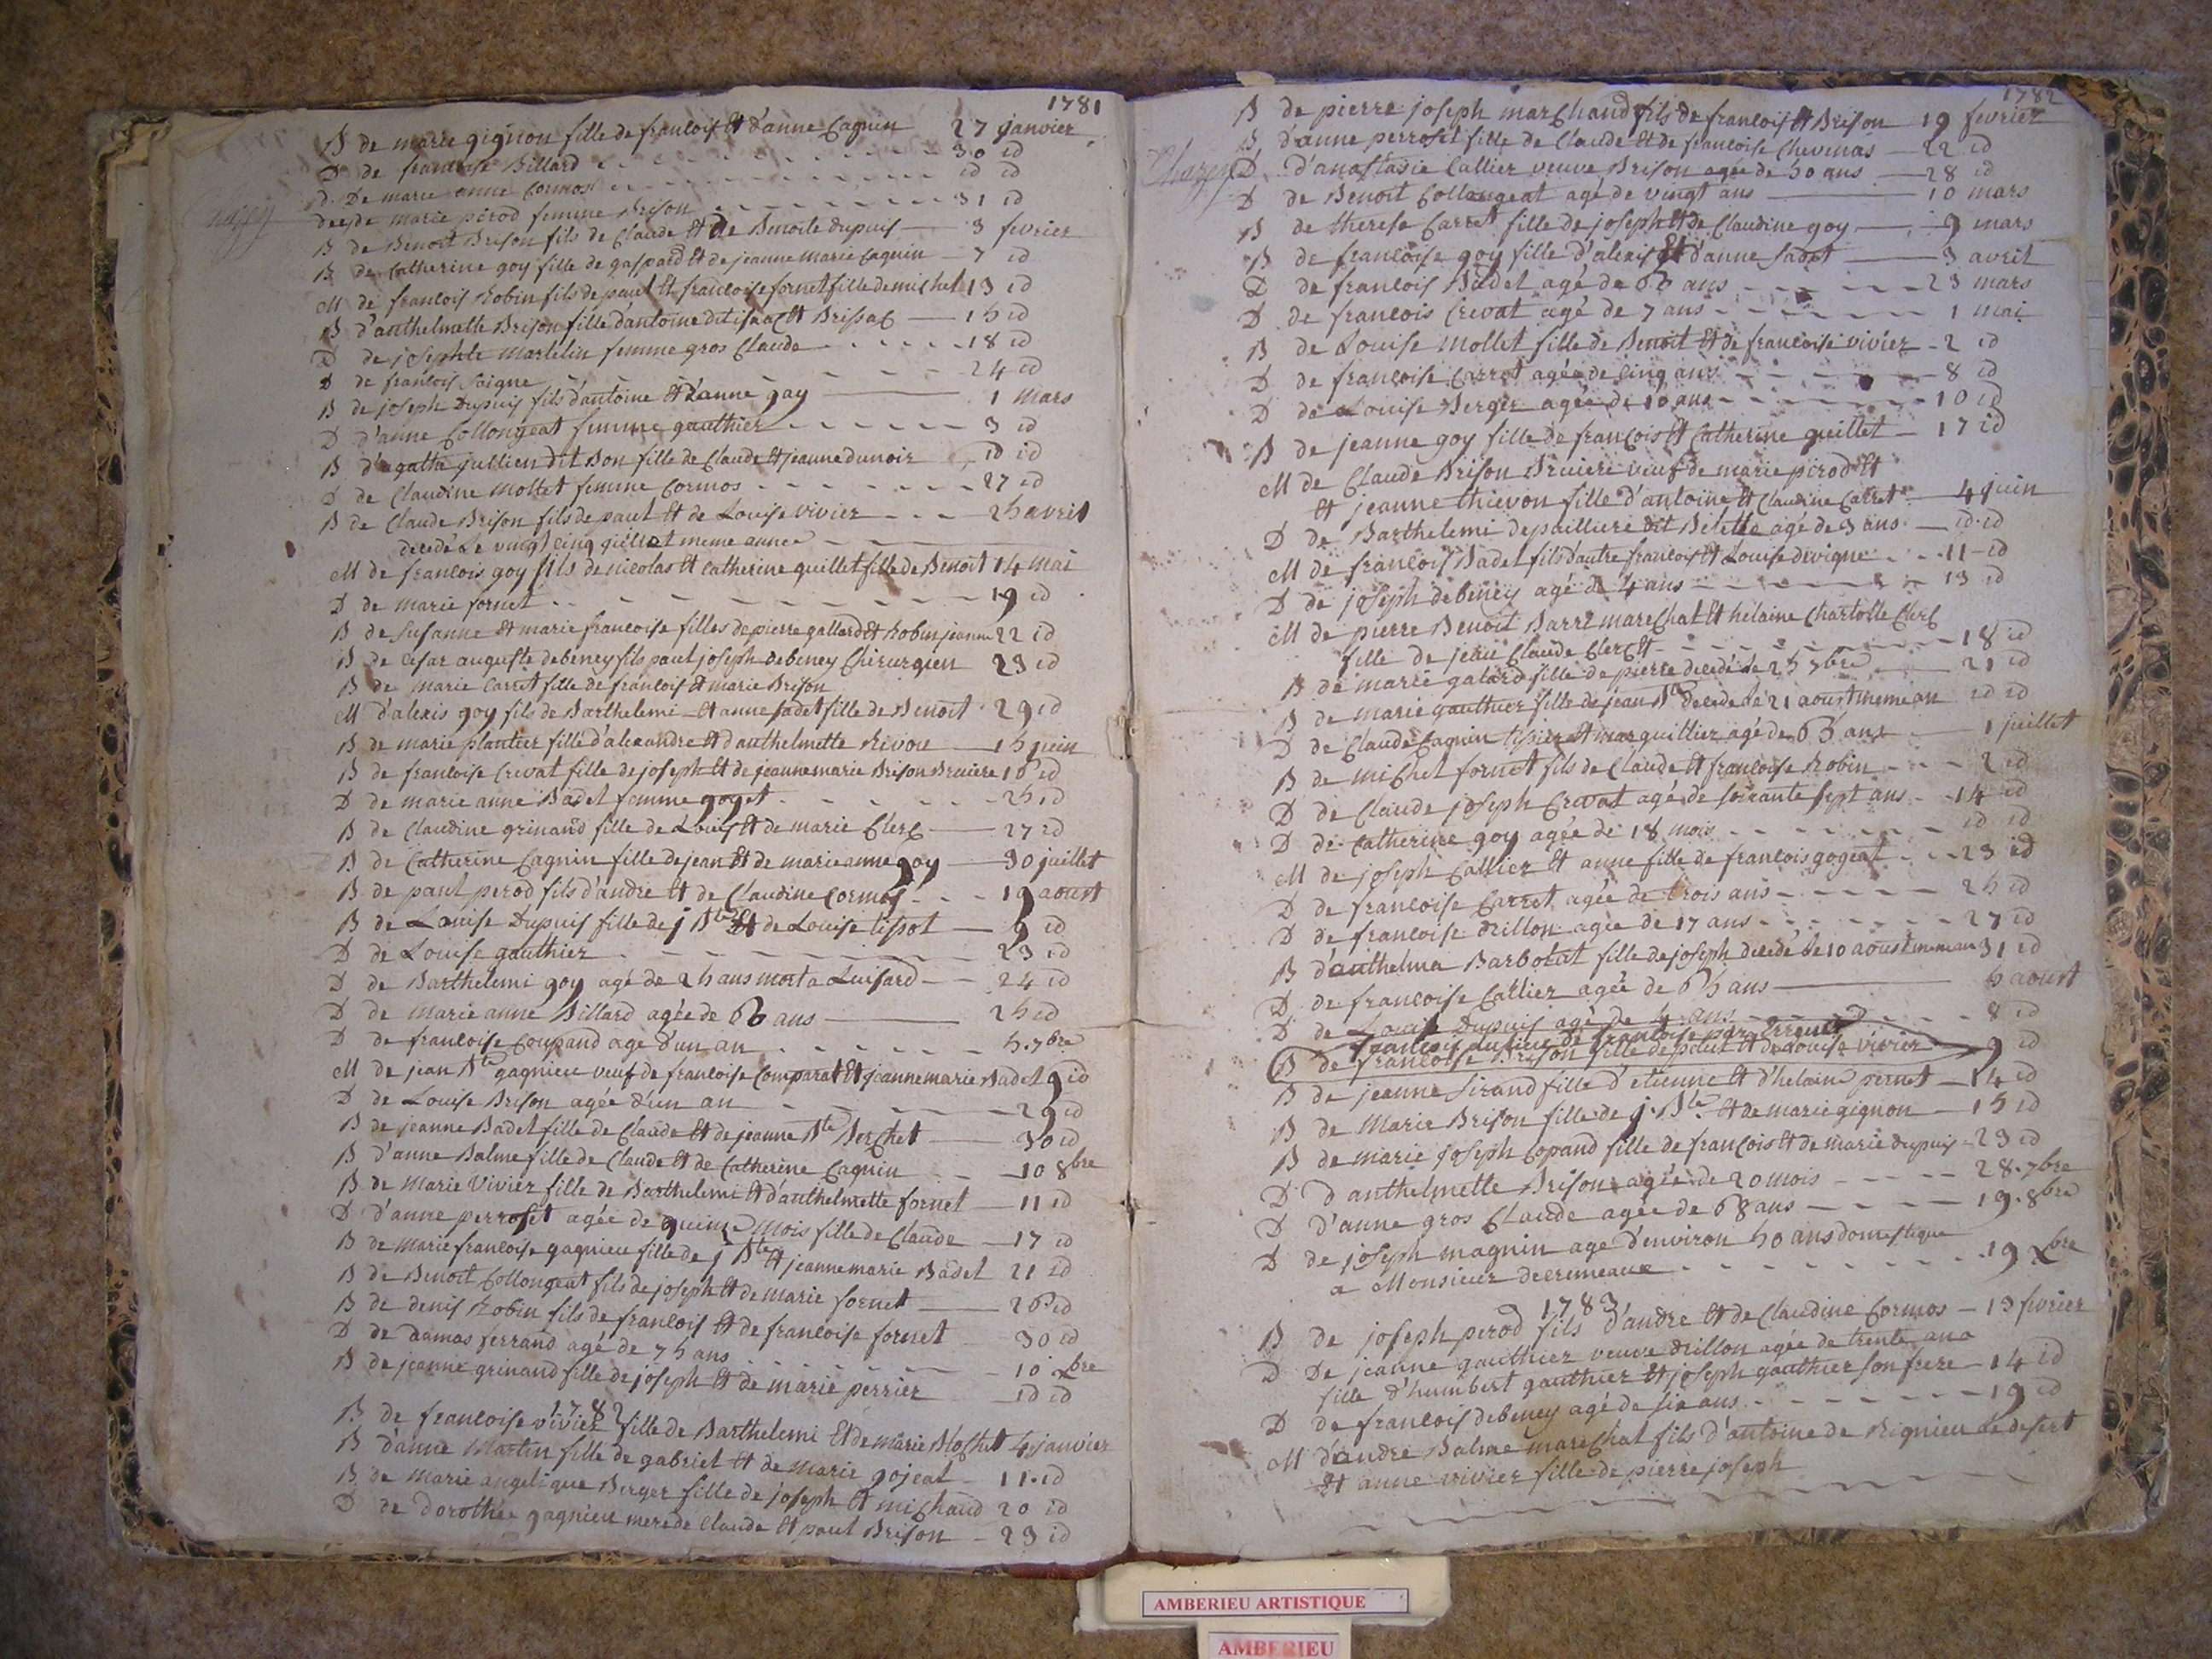 1781
B de marie gignon fille de francois et d'anne Cagnin 27 janvier
D de francoise Billard 30 id
d. De marie anne Cormos id id
deces de marie pérod femme Brison 31 id
B de Benoit Brison fils de Claude et de Benoite dupuis 3 fevrier
B de Catherine goy fille de gaspard et de jeanne marie Cagnin 7 id
M de francois Robin fils de paul et francoise fornet fille de michel 13 id
B d'anthelmette Brison fille d'antoine dit isaac et Brissac 15 id
D de josephte martelin femme gros Claude 18 id
D de francois Saigne 24 id
B de joseph Dupuis fils d'antoine et d'anne gay 1 mars
D d'anne Collongeat femme gauthier 3 id
B d'agathe jullien dit Bon fille de Claude et jeanne dunoir id id
D de Claudine mollet femme Cormos 27 id
B de Claude Brison fils de paul et de Louise vivier 25 avril
decedé Le vingt cinq meme année
M de francois goy fils de nicolas et catherine guillet fille de Benoit 14 mai
D de marie fornet 19 id
B de Susanne et marie francoise filles de pierre gallard et Robin jeanne 22 id
B de Cesar auguste debeney fils paul joseph debeney Chirurgien 23 id
B de marie Carret fille de francois et marie Brison
M d'alexis goy fils de Barthelemi et anne Sadet fille de Benoit 29 id
B de marie plantier fille d'alexandre et d'anthelmette Rivon 15 juin
B de francoise Crevat fille de joseph et de jeanne marie Brison Bruiere 16 id
D de marie anne Badel femme goget 25 id
B de Claudine grinand fille de Louis et de marie Clerc 27 id
B de Catherine Cagnin fille de jean et de marie anne goy 30 juillet
B de paul perod fils d'andre et de Claudine Cormos 19 aoust
B de Louise Dupuis fille de j Bte et de Louise tissot 9 id
D de Louise gauthier 23 id
D de Barthelemi goy agé de 25 ans mort a Luisard 24 id
D de marie anne Billard agée de 60 ans 25 id
D de francoise Coupand age d'un an 5. 7bre
M de jean Bte gagnieu veuf de francoise Comparat et jeanne marie Badel 9 id
D de Louise Brison agée d'un an 29 id
B de jeanne Badel fille de Claude et de jeanne Bte Berchet 30 id
B d'anne Balme fille de Claude et de Catherine Cagnin 10 8bre
B de Marie Vivier fille de Barthelemi et d'anthelmette fornet 11 id
D d'anne perroset agée de quinze mois fille de Claude 17 id
B de Marie francoise gagnieu fille de j Bte et jeanne marie Badel 21 id
B de Benoit Collongeat fils de joseph et de marie fornet 26 id
B de denis Robin fils de francois et de francoise fornet 30 id
D de damas ferrand agé de 75 ans 10 Xbre
B de jeanne grinand fille de joseph et de marie perrier id id
1782
B de francoise vivier fille de Barthelemi et de marie Blochet 4 janvier
B d'anne Martin fille de gabriel et de marie gojeat 11. id
B de Marie angelique Berger fille de joseph et michaud 20 id
D de Dorothée gagnieu mere de Claude et paul Brison 23 id
1782
B de pierre joseph marchand fils de francois et Brison 19 fevrier
B d'anne perroset fille de Claude et de francoise Chevinas 22 id
D d'anastasie Callier veuve Brison agée de 50 ans 28 id
D de Benoit Collongeat agé de vingt ans 10 mars
B de therese Carret fille de joseph et de Claudine goy 9 mars
B de francoise goy fille d'alexis et d'anne Sadet 3 avril
D de francois Badel agé de 65 ans 23 mars
D de francois Crevat agé de 7 ans 1 mai
B de Louise mollet fille de Benoit et de francoise vivier 2 id
D de francoise Carrot agée de Cinq ans 8 id
D de Louise Berger agée de 10 ans 10 id
B de jeanne goy fille de francois et Catherine guillet 17 id
M de Claude Brison Bruiere veuf de marie pirod et
et jeanne thievon fille d'antoine et Claudine Carret 4 juin
D de Barthelemi depailliere dit Belette agé de 3 ans id. id
M de francois Badel fils d'autre francois et Louise devigne 11 id
D de joseph debeney agé de 4 ans 13 id
M de pierre Benoit Barré marechal et helaine Charlotte Clerc
fille de jean Claude Clerc et 18 id
B de marie galard fille de pierre decedé le 25 7bre 21 id
B de marie gauthier fille de jean Bte decedé le 21 aoust meme an id id
D de Claude Cagnin tissier et marguillier agé de 65 ans 1 juillet
B de michel fornet fils de Claude et francoise Robin 2 id
D de Claude joseph Crevat agé de soixante sept ans 14 id
D de Catherine goy agée de 18 mois id id
M de joseph Callier et anne fille de francois gogeat 23 id
D de francoise Carret agée de trois ans 25 id
D de francoise drillon agée de 17 ans 27 id
B d'anthelma Barbolat fille de joseph decedé le 10 aoust meme an 31 id
D de francoise Callier agée de 65 ans 5 aoust
D de Louise Dupuis agé de 4 ans 8 id
francois au lieu de francoise par erreur
B de francoise Brison fille de paul et de Louise vivier 9 id
B de jeanne Sirand fille d'etienne et d'helaine pernet 14 id
B de Marie Brison fille de j. Bte et de marie gignon 15 id
B de marie joseph Copand fille de francois et de marie dupuis 23 id
D d'anthelmette Brison agée de 20 mois 28. 7bre
D d'anne gros Claude agée de 68 ans 19. 8bre
D de joseph magnin age d'environ 50 ans domestique
a Monsieur decremeaux 19 Xbre
1783
B de joseph perod fils d'andre et de Claudine Cormos 13 fevrier
D De jeanne gauthier veuve drillon agée de trente ans
fille d'humbert gauthier et joseph gauthier son frere 14 id
D de francois debeney agé de six ans 19 id
M d'andré Balme marechal fils d'antoine de Rignieu Le desert
et anne vivier fille de pierre joseph
AMBERIEU ARTISTIQUE
AMBERIEU